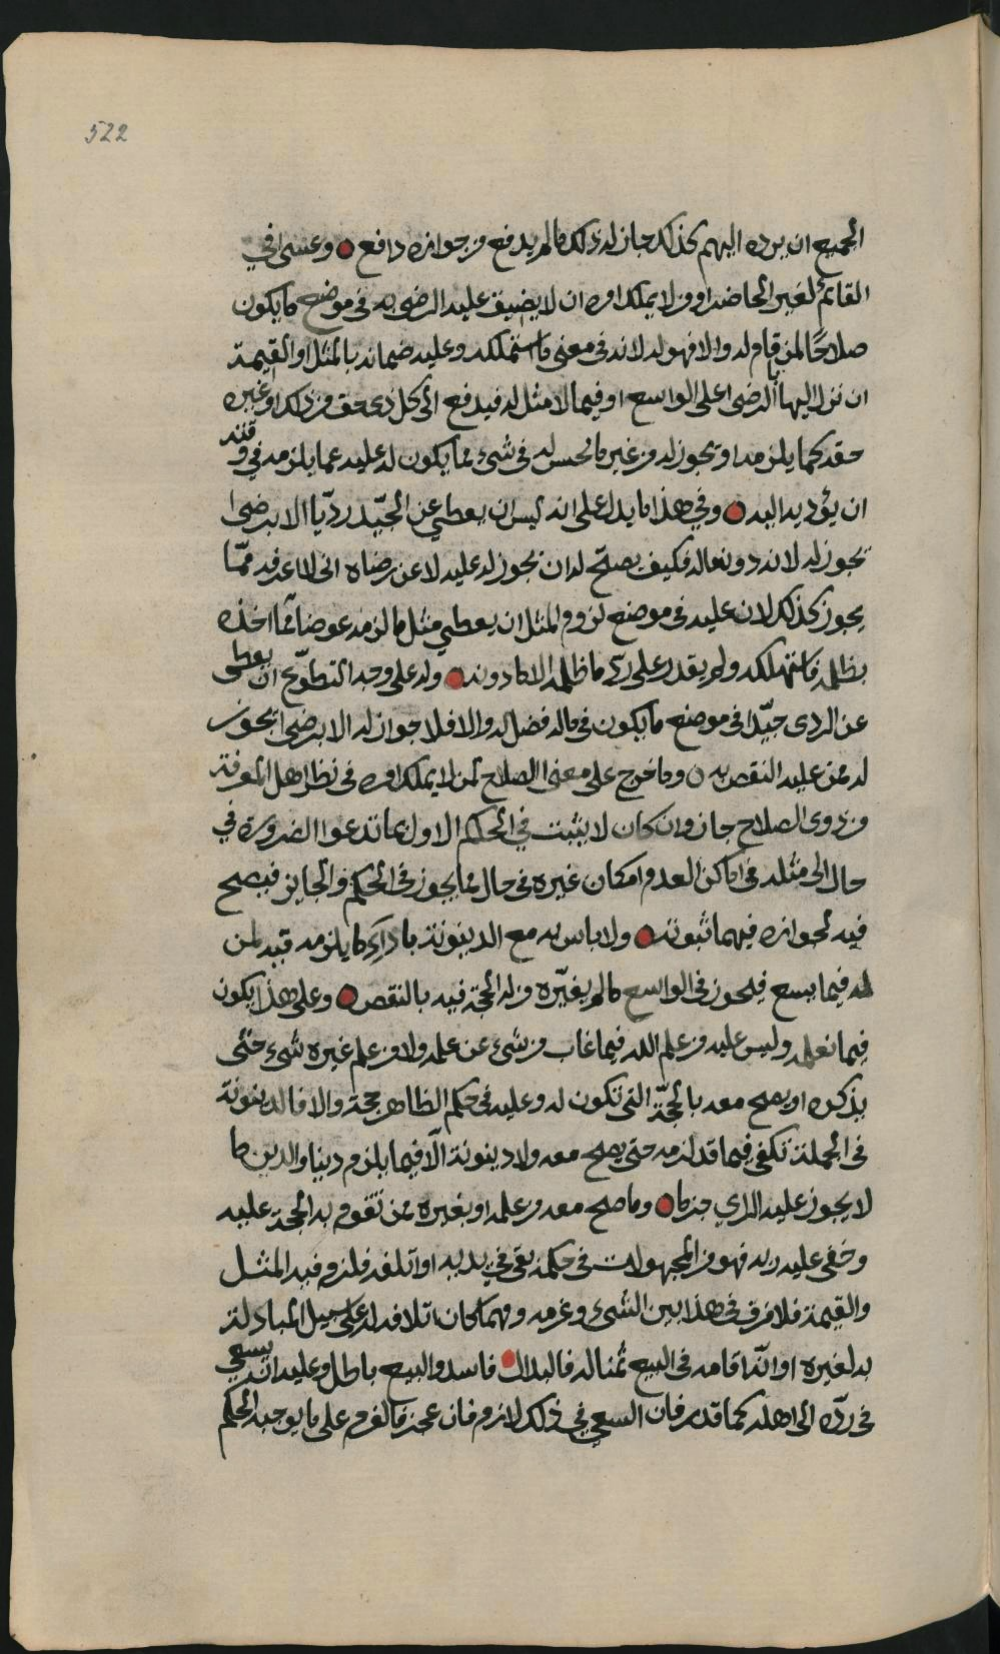 522
الجميع ان يرده اليهم كذلك جاز له ذلك ما لم يدفع من جوازه دافع وعسى في
القائم لغير الحاضر او من لا يملك امره ان لا يضيق عليه الرضى به في موضع ما يكون
صلاحًا لمن قام له والا فهو له لانه في معنى ما استهلكه وعليه ضمانه بالمثل او القيمة
ان نزل اليها بالرضى اعلى الواسع او فيما لا مثل له فيدفع الى كل ذي حق من ذلك او غيره
حقه كما يلزمه او يجوز له من غير ما نحس له في شيء مما يكون له عليه عما يلزمه في وقته
ان يؤديه اليه وفي هذا ما يدل على انه ليس ان يعطي عن الجيّد رديّا الا برضى
يجوز له لانه دونه فكيف يصح له ان يجوز له عليه لا عن رضاه اني لا اعرفه ممّا
يجوز كذلك لان عليه في موضع لزوم المثل ان يعطي مثل ما لزمه عوضا عما اخذه
بظلمه فاستهلكه ولم يقدر على ردّ ما ظلمه الا ما دونه وله على وجه التطوّع ان يعطي
عن الردي جيّدا في موضع ما يكون في ماله فضل له والا فلا جواز له الا برضى يجوز
له ممن عليه النقص به وما خرج على معنى الصلاح لمن لا يملك امره في نظر اهل المعرفة
من ذوي الصلاح جاز وان كان لا يثبت في الحكم الاول بما تدعوا الضرورة في
حال الى مثله في اماكن العدم امكان غيره في حال مما يجوز في الحكم والجايز فيصح
فيه لجوازه فيهما ثبوته ولا باس به مع الدينونة باداء ما يلزمه فيه لمن
له فيما يسع فيجوز في الواسع ما لم يغيّره من له الحجة فيه بالنقص وعلى هذا يكون
فيما نعلمه وليس عليه من علم الله فيما غاب من شيء عن علمه ولا من علم غيره شيء حتى
يذكره او يصح معه بالحجّة التي تكون له وعليه في حكم الظاهر حجة والا فالدينونة
في الجملة تكفي فيما قد لزمه حتى يصح معه ولا دينونة الّا فيما يلزم دينا والدين ما
لا يجوز عليه الراي جزما وما صح معه من علمه او بغيره ممن تقوم به الحجة عليه
وخفي عليه ربه فهو من المجهولات في حكمه بقي في يديه او اتلفه فلزمه فيه المثل
والقيمة فلا فرق في هذا بين الشيء وغرمه ومهما كان اتلافه له على سبيل المبادلة
به لغيره او انّه اقامه في البيع ثمنا له فالبدال فاسد والبيع باطل وعليه ان يسعى
في ردّه الى اهله كما قدر فان السعي في ذلك لازم فان عجز فالغرم على ما يوجبه الحكم